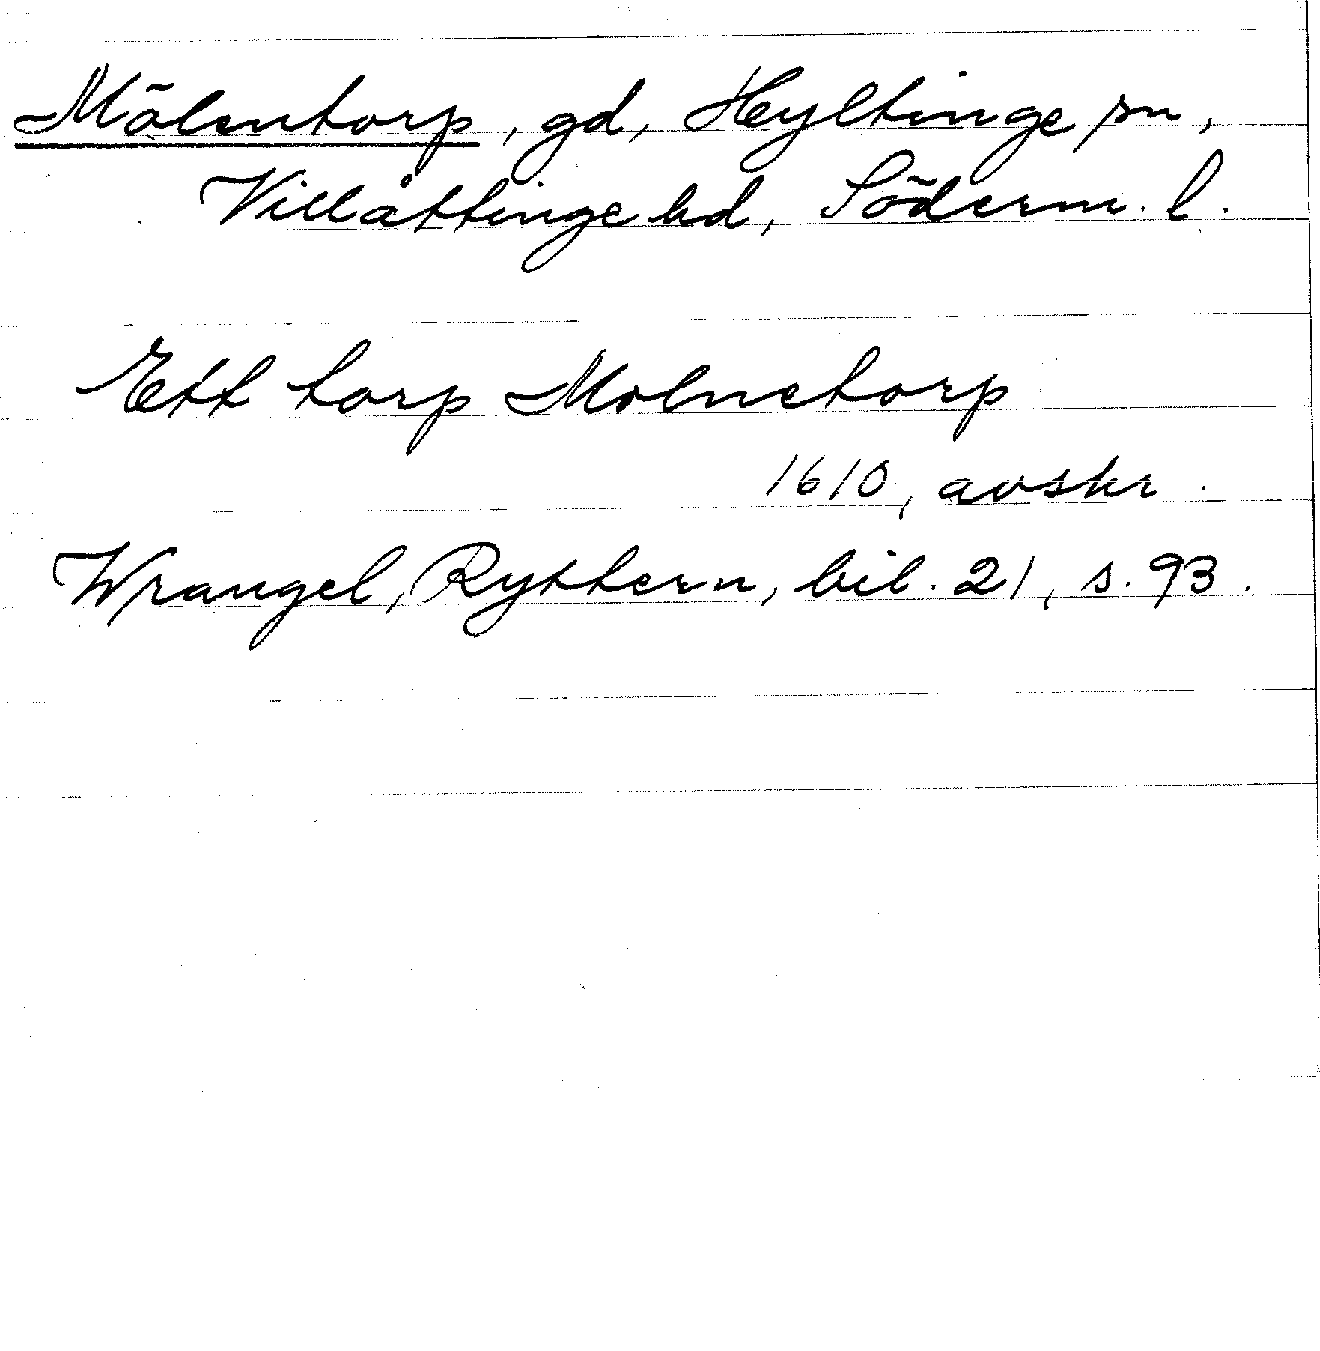 Mölentorp, gd, Hyltinge sn,
Villåttinge hd, Söderm. l.
Ett torp Molnetorp
1610, avskr.
Wrangel, Ryttern, bil. 21, s. 93.